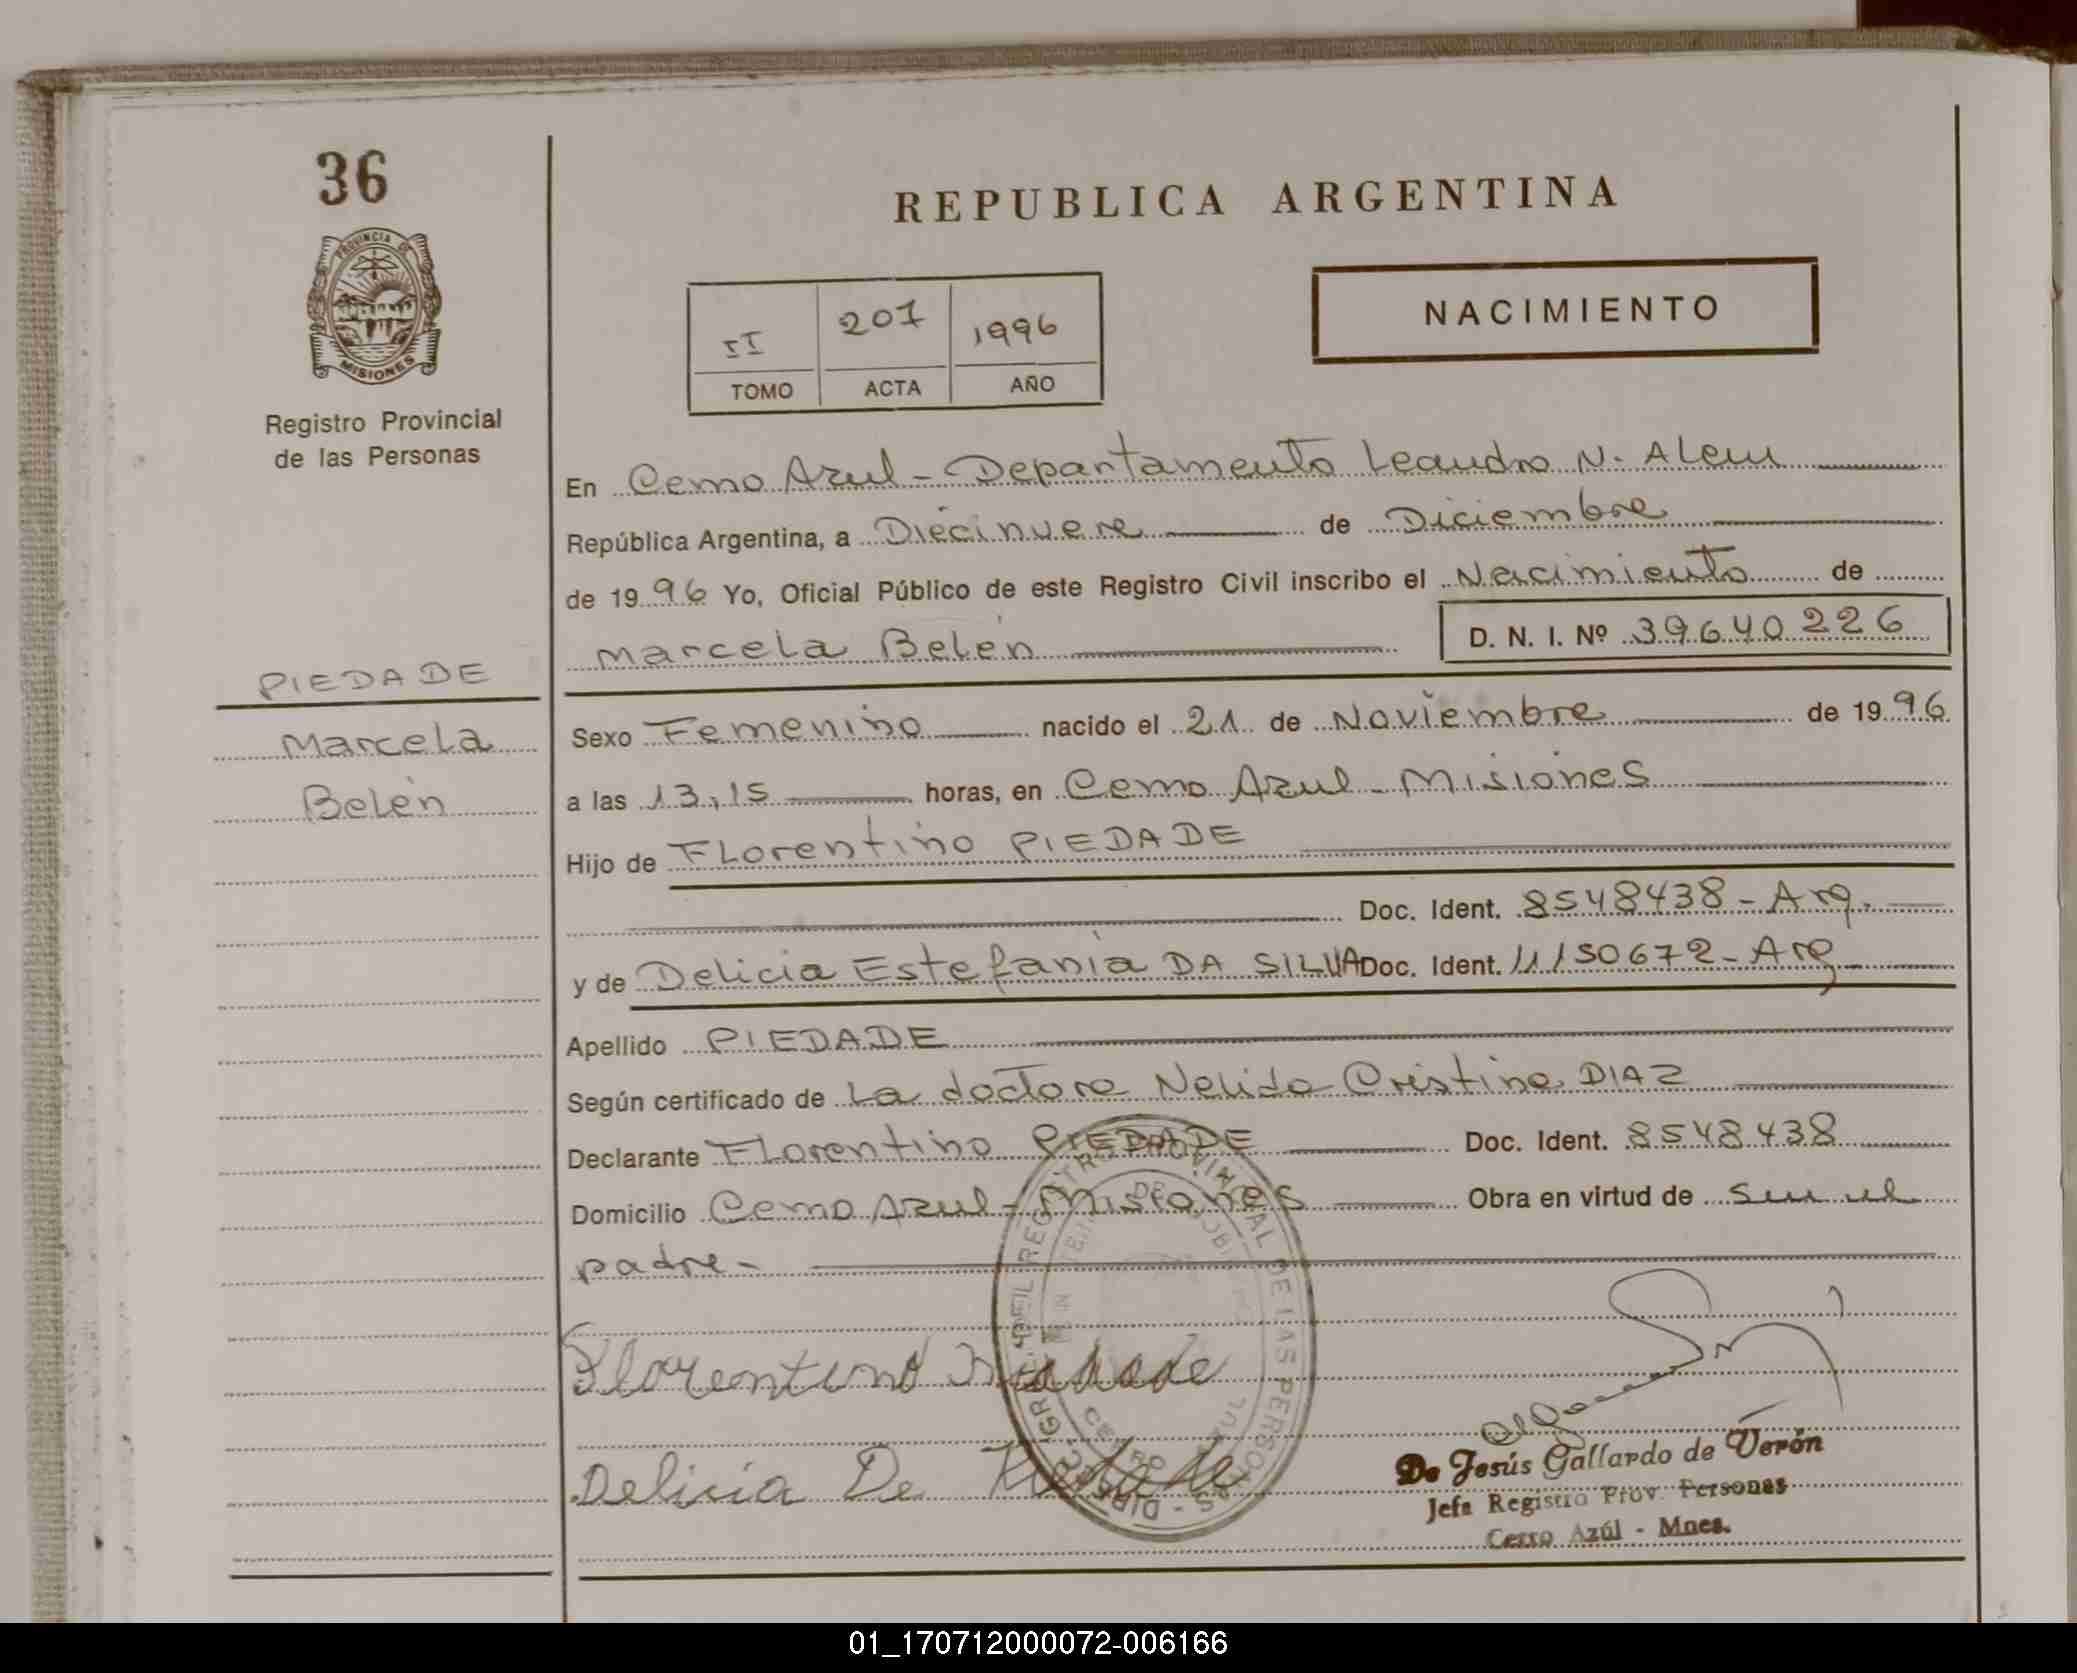 36
PROVINCIA DE
MISIONES
Registro Provincial
de las Personas
PIEDADE
Marcela
Belén
REPUBLICA ARGENTINA
NACIMIENTO
II 207 1996
TOMO ACTA AÑO
En Cerro Azul - Departamento Leandro N. Alem
República Argentina, a Diecinueve de Diciembre
de 1996 Yo, Oficial Público de este Registro Civil inscribo el Nacimiento de
Marcela Belén D. N. I. Nº 39640226
Sexo Femenino nacido el 21 de Noviembre de 1996
a las 13,15 horas, en Cerro Azul - Misiones
Hijo de Florentino PIEDADE
Doc. Ident. 8548438 - Arg.
y de Delicia Estefanía DA SILVA Doc. Ident. 11150672 - Arg
Apellido PIEDADE
Según certificado de La doctora Nelida Cristina DIAZ
Declarante Florentino PIEDADE Doc. Ident. 8548438
Domicilio Cerro Azul - Misiones Obra en virtud de ser el
padre -
Florentino Piedade
Delicia De Piedade
REGISTRO PROVINCIAL DE LAS PERSONAS
CERRO AZUL
De Jesús Gallardo de Verón
Jefa Registro Prov. Personas
Cerro Azúl - Mnes.
01_170712000072-006166